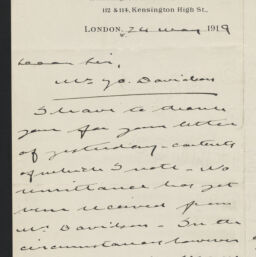 112 & 114, Kensington High St.,
LONDON, 24 May 1919
Dear Sir,
Mr Jo. Davidson
I have to thank
you for your letter
of yesterday - contents
of which I note - No
remittance has yet
been received from
Mr. Davidson - In the
circumstances however